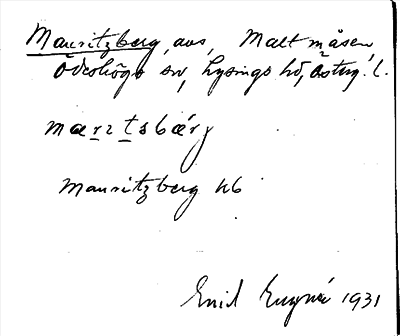 Mauritzberg, avs, Maltmåsen,
Ödeshögs sn, Lysings hd, Östrg. l.
marztsbärj
Mauritzberg Hb
Enid Eugné 1931